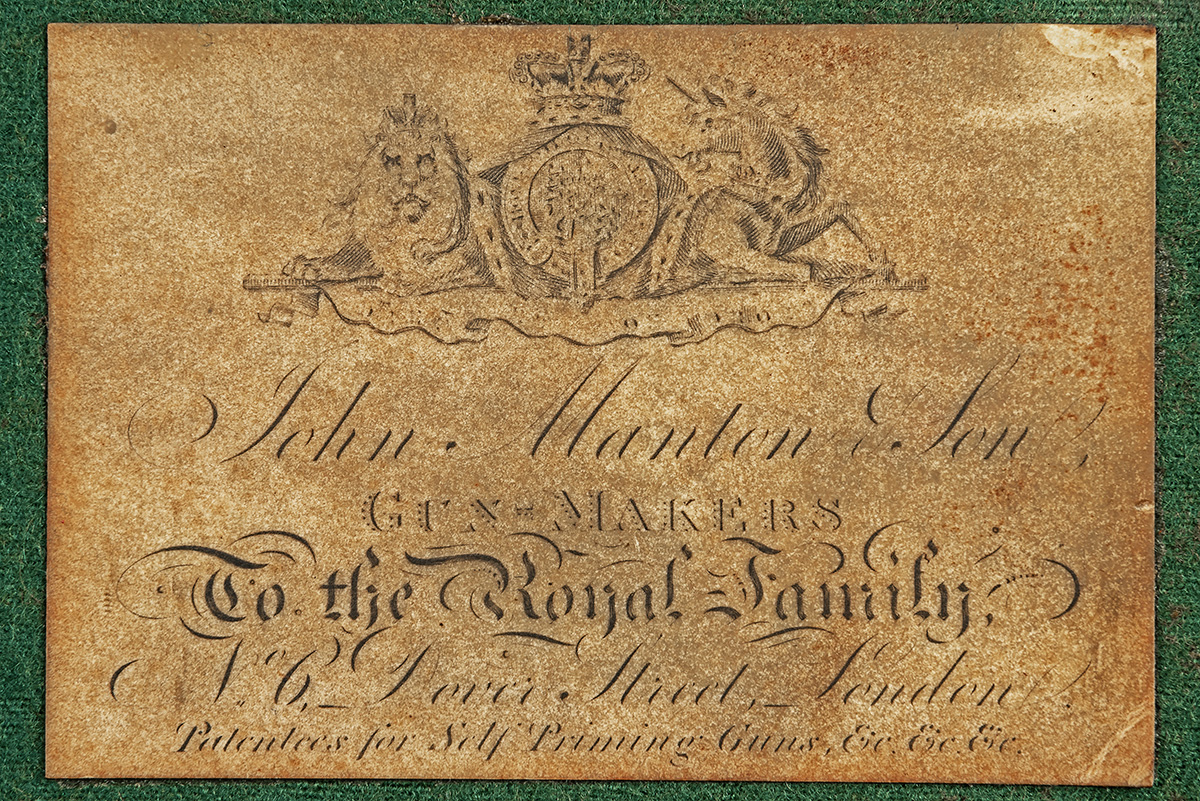 John Manton & Son,
GUN=MAKERS
To the Royal Family,
No. 6, Dover Street, London.
Patentees for Self Priming Guns, &c. &c. &c.